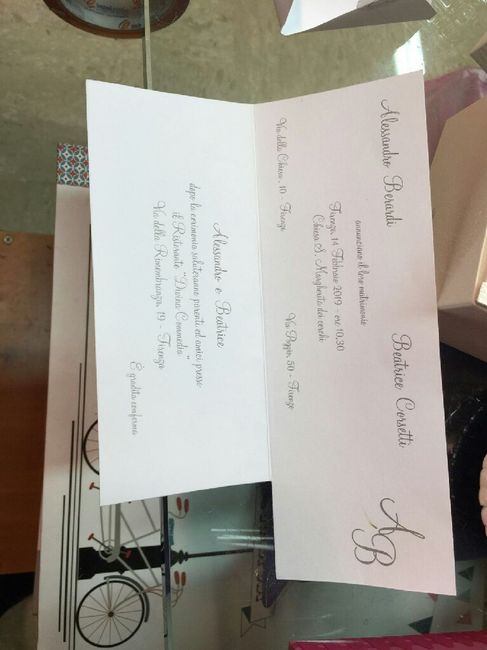 Alessandro Berardi
Beatrice Corsetti
annunciano il loro matrimonio
Firenze, 14 Febbraio 2019 - ore 10,30
Chiesa S. Margherita dei cerchi
Via della Chiesa, 10 - Firenze
Via Poggio, 50 - Firenze
AB
Alessandro e Beatrice
dopo la cerimonia saluteranno parenti ed amici presso
il Ristorante "Divina Commedia"
Via della Rimembranza, 19 - Firenze
È gradita conferma